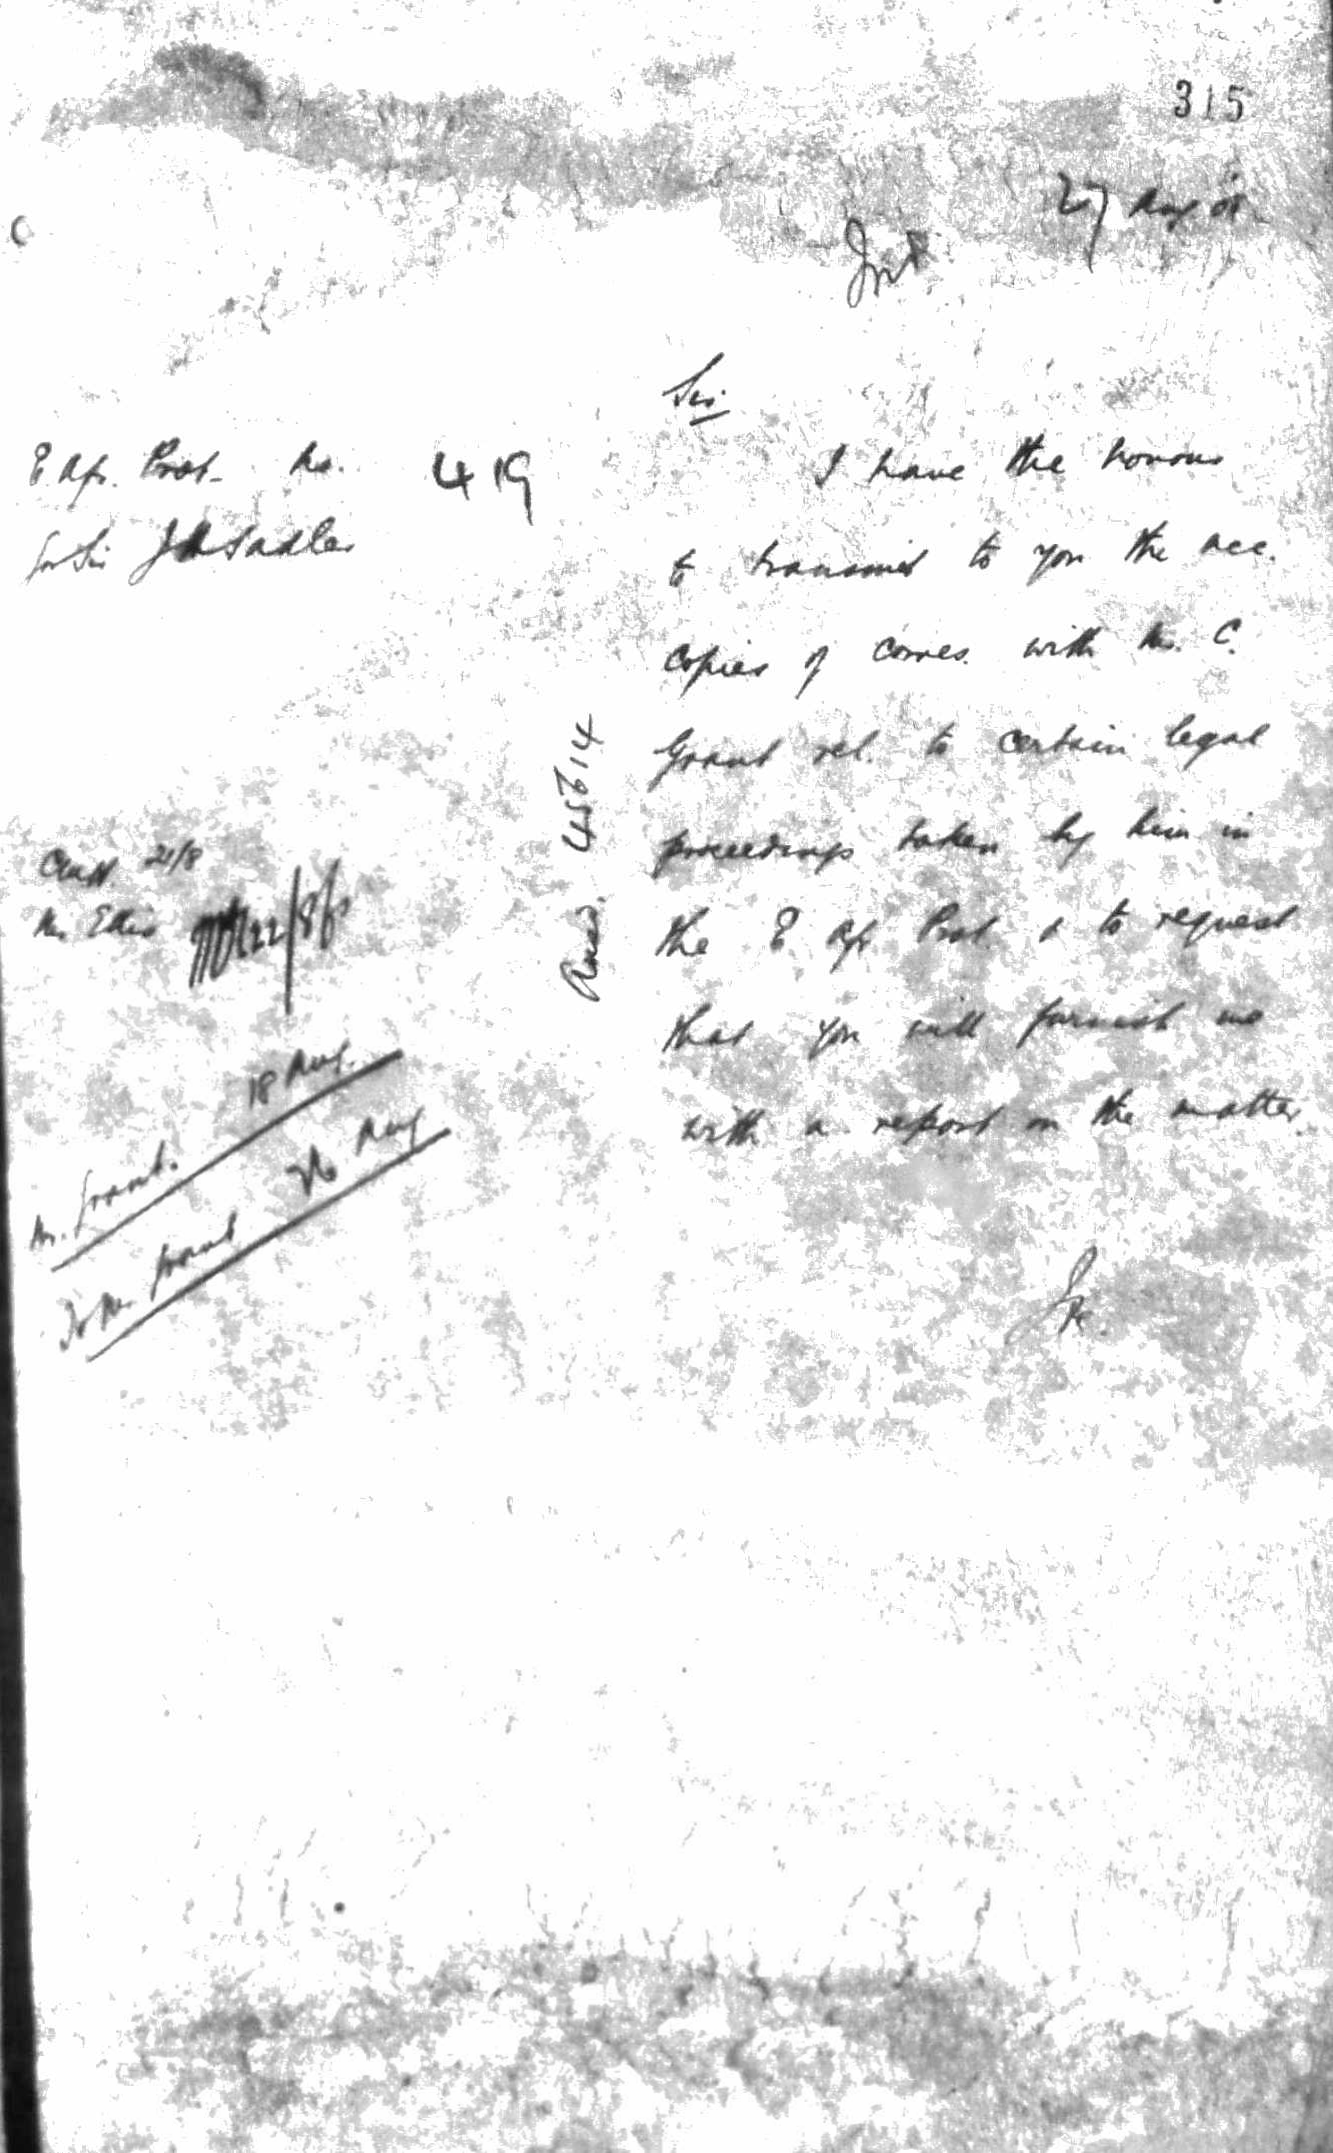 315
27 Aug 08
Sir
E Afr. Prot. No. 419
Gov Sir J H Sadler
I have the honour
to transmit to you the acc.
copies of corres. with Mr. C.
Grant rel. to certain legal
proceedings taken by him in
the E Afr Prot & to request
that you will furnish me
with a report on the matter.
Answd. 45614
21/8
Mr. Ellis 22/8
Mr. Grant. 18 Aug.
To Mr. Grant 26 Aug